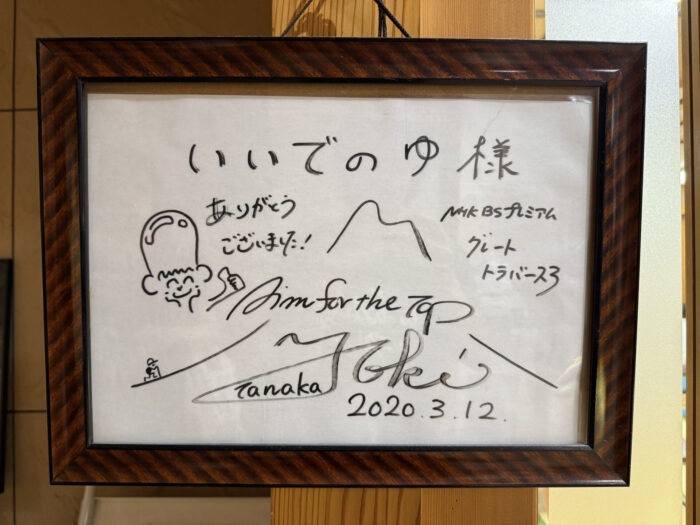 いいでのゆ 様
ありがとう
ございました!
NHK BSプレミアム
グレート
トラバース3
Aim for the Top
Tanaka Yoki
2020.3.12.